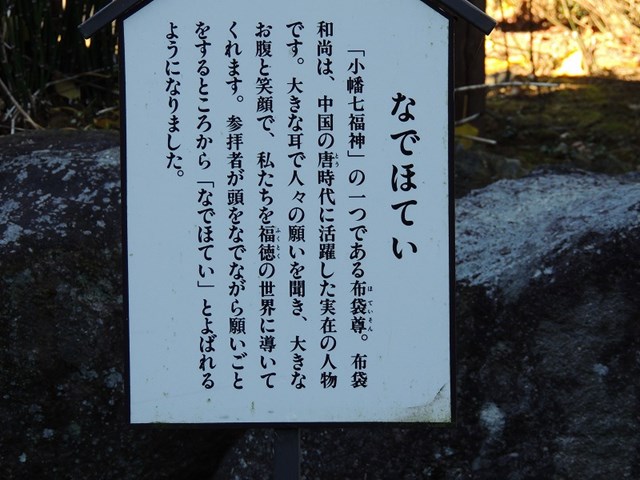 なでほてい
「小幡七福神」の一つである布袋尊。布袋
和尚は、中国の唐時代に活躍した実在の人物
です。大きな耳で人々の願いを聞き、大きな
お腹と笑顔で、私たちを福徳の世界に導いて
くれます。参拝者が頭をなでながら願いごと
をするところから「なでほてい」とよばれる
ようになりました。